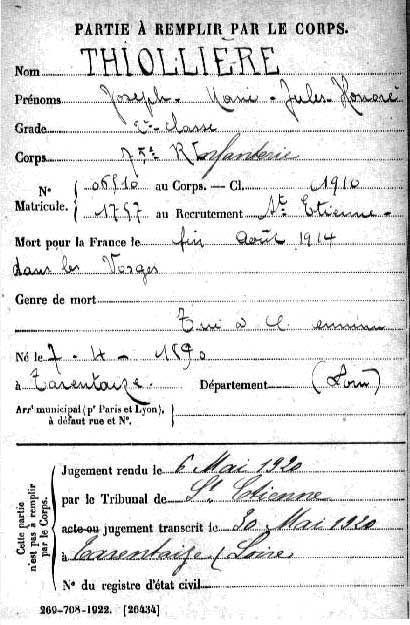 PARTIE À REMPLIR PAR LE CORPS.
Nom THIOLLIÈRE
Prénoms Joseph - Marie - Jules - Honoré
Grade 2e classe
Corps 75e R Infanterie
N° Matricule. { 06510 au Corps. — Cl. 1910
1757 au Recrutement St Etienne
Mort pour la France le fin Août 1914
dans les Vosges
Genre de mort
Tué à l'ennemi
Né le 7 - 4 - 1890
à Tarentaize. Département (Loire)
Arrt municipal (pr Paris et Lyon), à défaut rue et N°.
Cette partie n'est pas à remplir par le Corps.
Jugement rendu le 6 Mai 1920
par le Tribunal de St Etienne
acte ou jugement transcrit le 30 Mai 1920
à Tarentaize (Loire)
N° du registre d'état civil
269-708-1922. [26434]